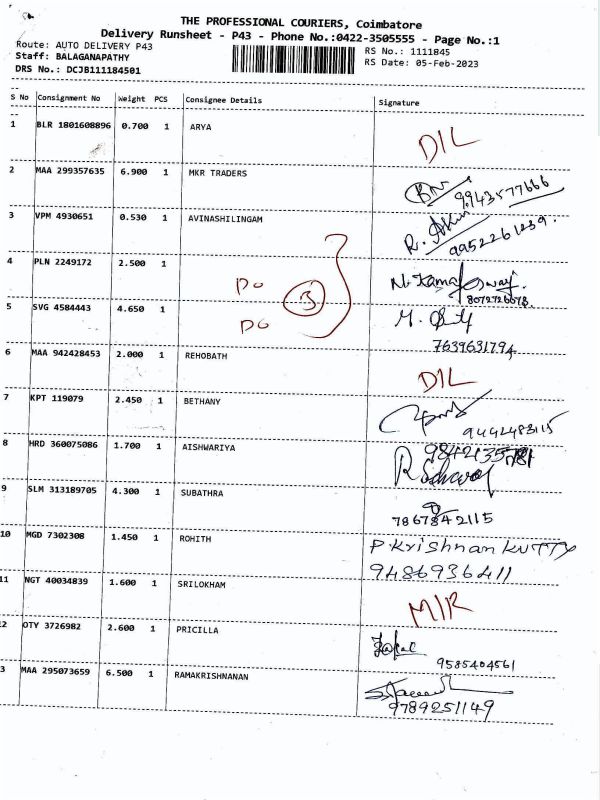 THE PROFESSIONAL COURIERS, Coimbatore
Delivery Runsheet - P43 - Phone No.:0422-3505555 - Page No.:1
Route: AUTO DELIVERY P43 RS No.: 1111845
Staff: BALAGANAPATHY RS Date: 05-Feb-2023
DRS No.: DCJB111184501
S No Consignment No Weight PCS Consignee Details Signature
1 BLR 1801608896 0.700 1 ARYA DIL
2 MAA 299357635 6.900 1 MKR TRADERS
9943577666
3 VPM 4930651 0.530 1 AVINASHILINGAM
9952261239.
4 PLN 2249172 2.500 1 DO 3
8072726678.
5 SVG 4584443 4.650 1 DO
7639631794
6 MAA 942428453 2.000 1 REHOBATH DIL
7 KPT 119079 2.450 1 BETHANY
9442483115
8 HRD 360075086 1.700 1 AISHWARIYA
9 SLM 313189705 4.300 1 SUBATHRA
7867842115
10 MGD 7302308 1.450 1 ROHITH P.Krishnan KUTTY
9486936411
11 NGT 40034839 1.600 1 SRILOKHAM MIR
2 OTY 3726982 2.600 1 PRICILLA
9585404561
3 MAA 295073659 6.500 1 RAMAKRISHNANAN
9789251149